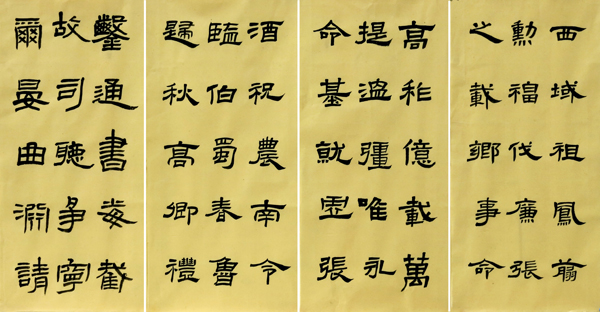 西域祖鳳翦
勳福伐廉張
之載鄉事命
高億載萬
提溫彊唯永
命基就張
酒祝農南令
臨伯蜀春魯
歸秋高卿禮
鑿通書每截
故司聽爭寧
爾晏曲淵請